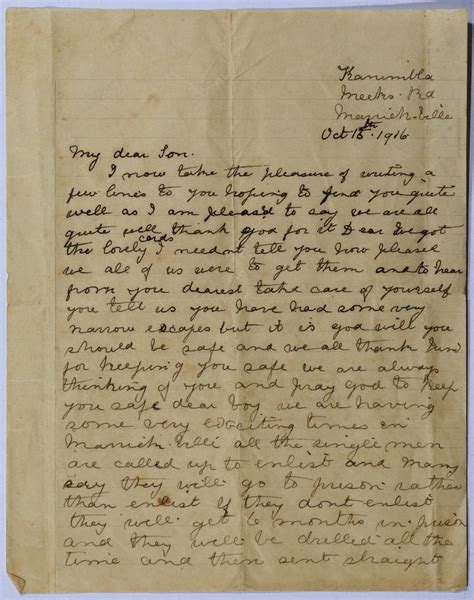 Kanimbla
Meeks. Rd
Marrick-ville
Oct 15th 1916
My dear Son.
I now take the pleasure of writing a
few lines to you hoping to find you quite
well as I am pleased to say we are all
quite well thank god for it Dear we got
the lovely cards I neednt tell you how pleased
we all of us were to get them and to hear
from you dearest take care of yourself
you tell us you have had some very
narrow escapes but it is god will you
should be safe and we all thank him
for keeping you safe we are always
thinking of you and pray god to keep
you safe dear boy we are having
some very exciting times in
Marrick-villi all the single men
are called up to enlist and many
say they will go to prison rather
than enlist if they dont enlist
they will get 6 months in prison
and they will be drilled all the
time and then sent straight